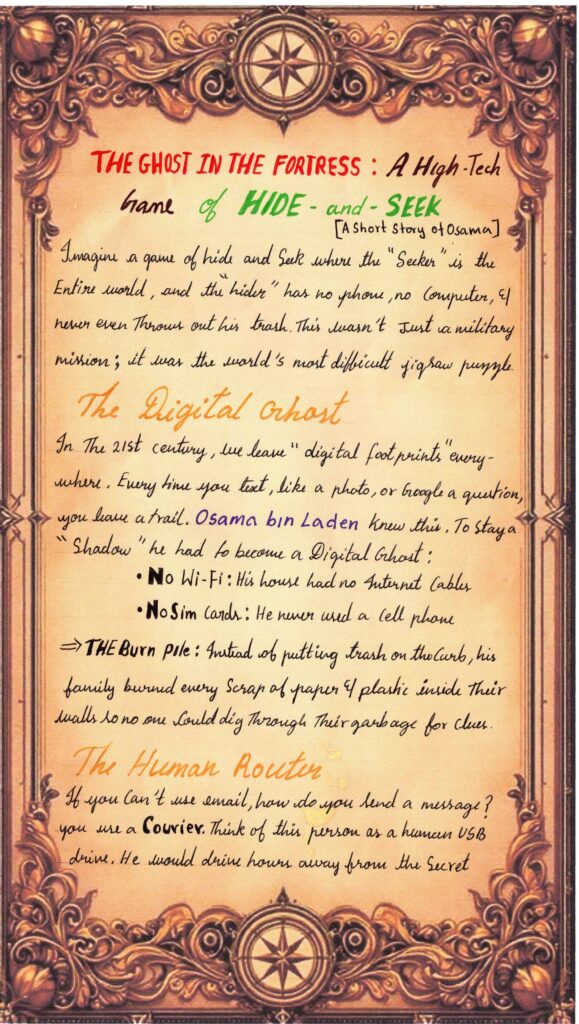 THE GHOST IN THE FORTRESS : A High-Tech
Game of HIDE - and - SEEK
[A Short Story of Osama]
Imagine a game of hide and Seek where the "Seeker" is the
Entire world, and the "hider" has no phone, no Computer, &
never even Throws out his trash. This wasn't Just a military
mission; it was the world's most difficult jigsaw puzzle.
The Digital Ghost
In The 21st century, we leave "digital footprints" every-
where. Every time you text, like a photo, or Google a question,
you leave a trail. Osama bin Laden Knew this. To Stay a
"Shadow" he had to become a Digital Ghost :
• No Wi-Fi : His house had no Internet Cables
• No Sim Cards : He never used a Cell phone
⇒ THE Burn Pile : Instead of putting trash on the Curb, his
family burned every Scrap of paper & plastic inside Their
walls so no one Could dig Through Their garbage for Clues.
The Human Router
If you Can't use email, how do you Send a message?
you use a Courier. Think of this person as a human USB
drive. He would drive hours away from the Secret